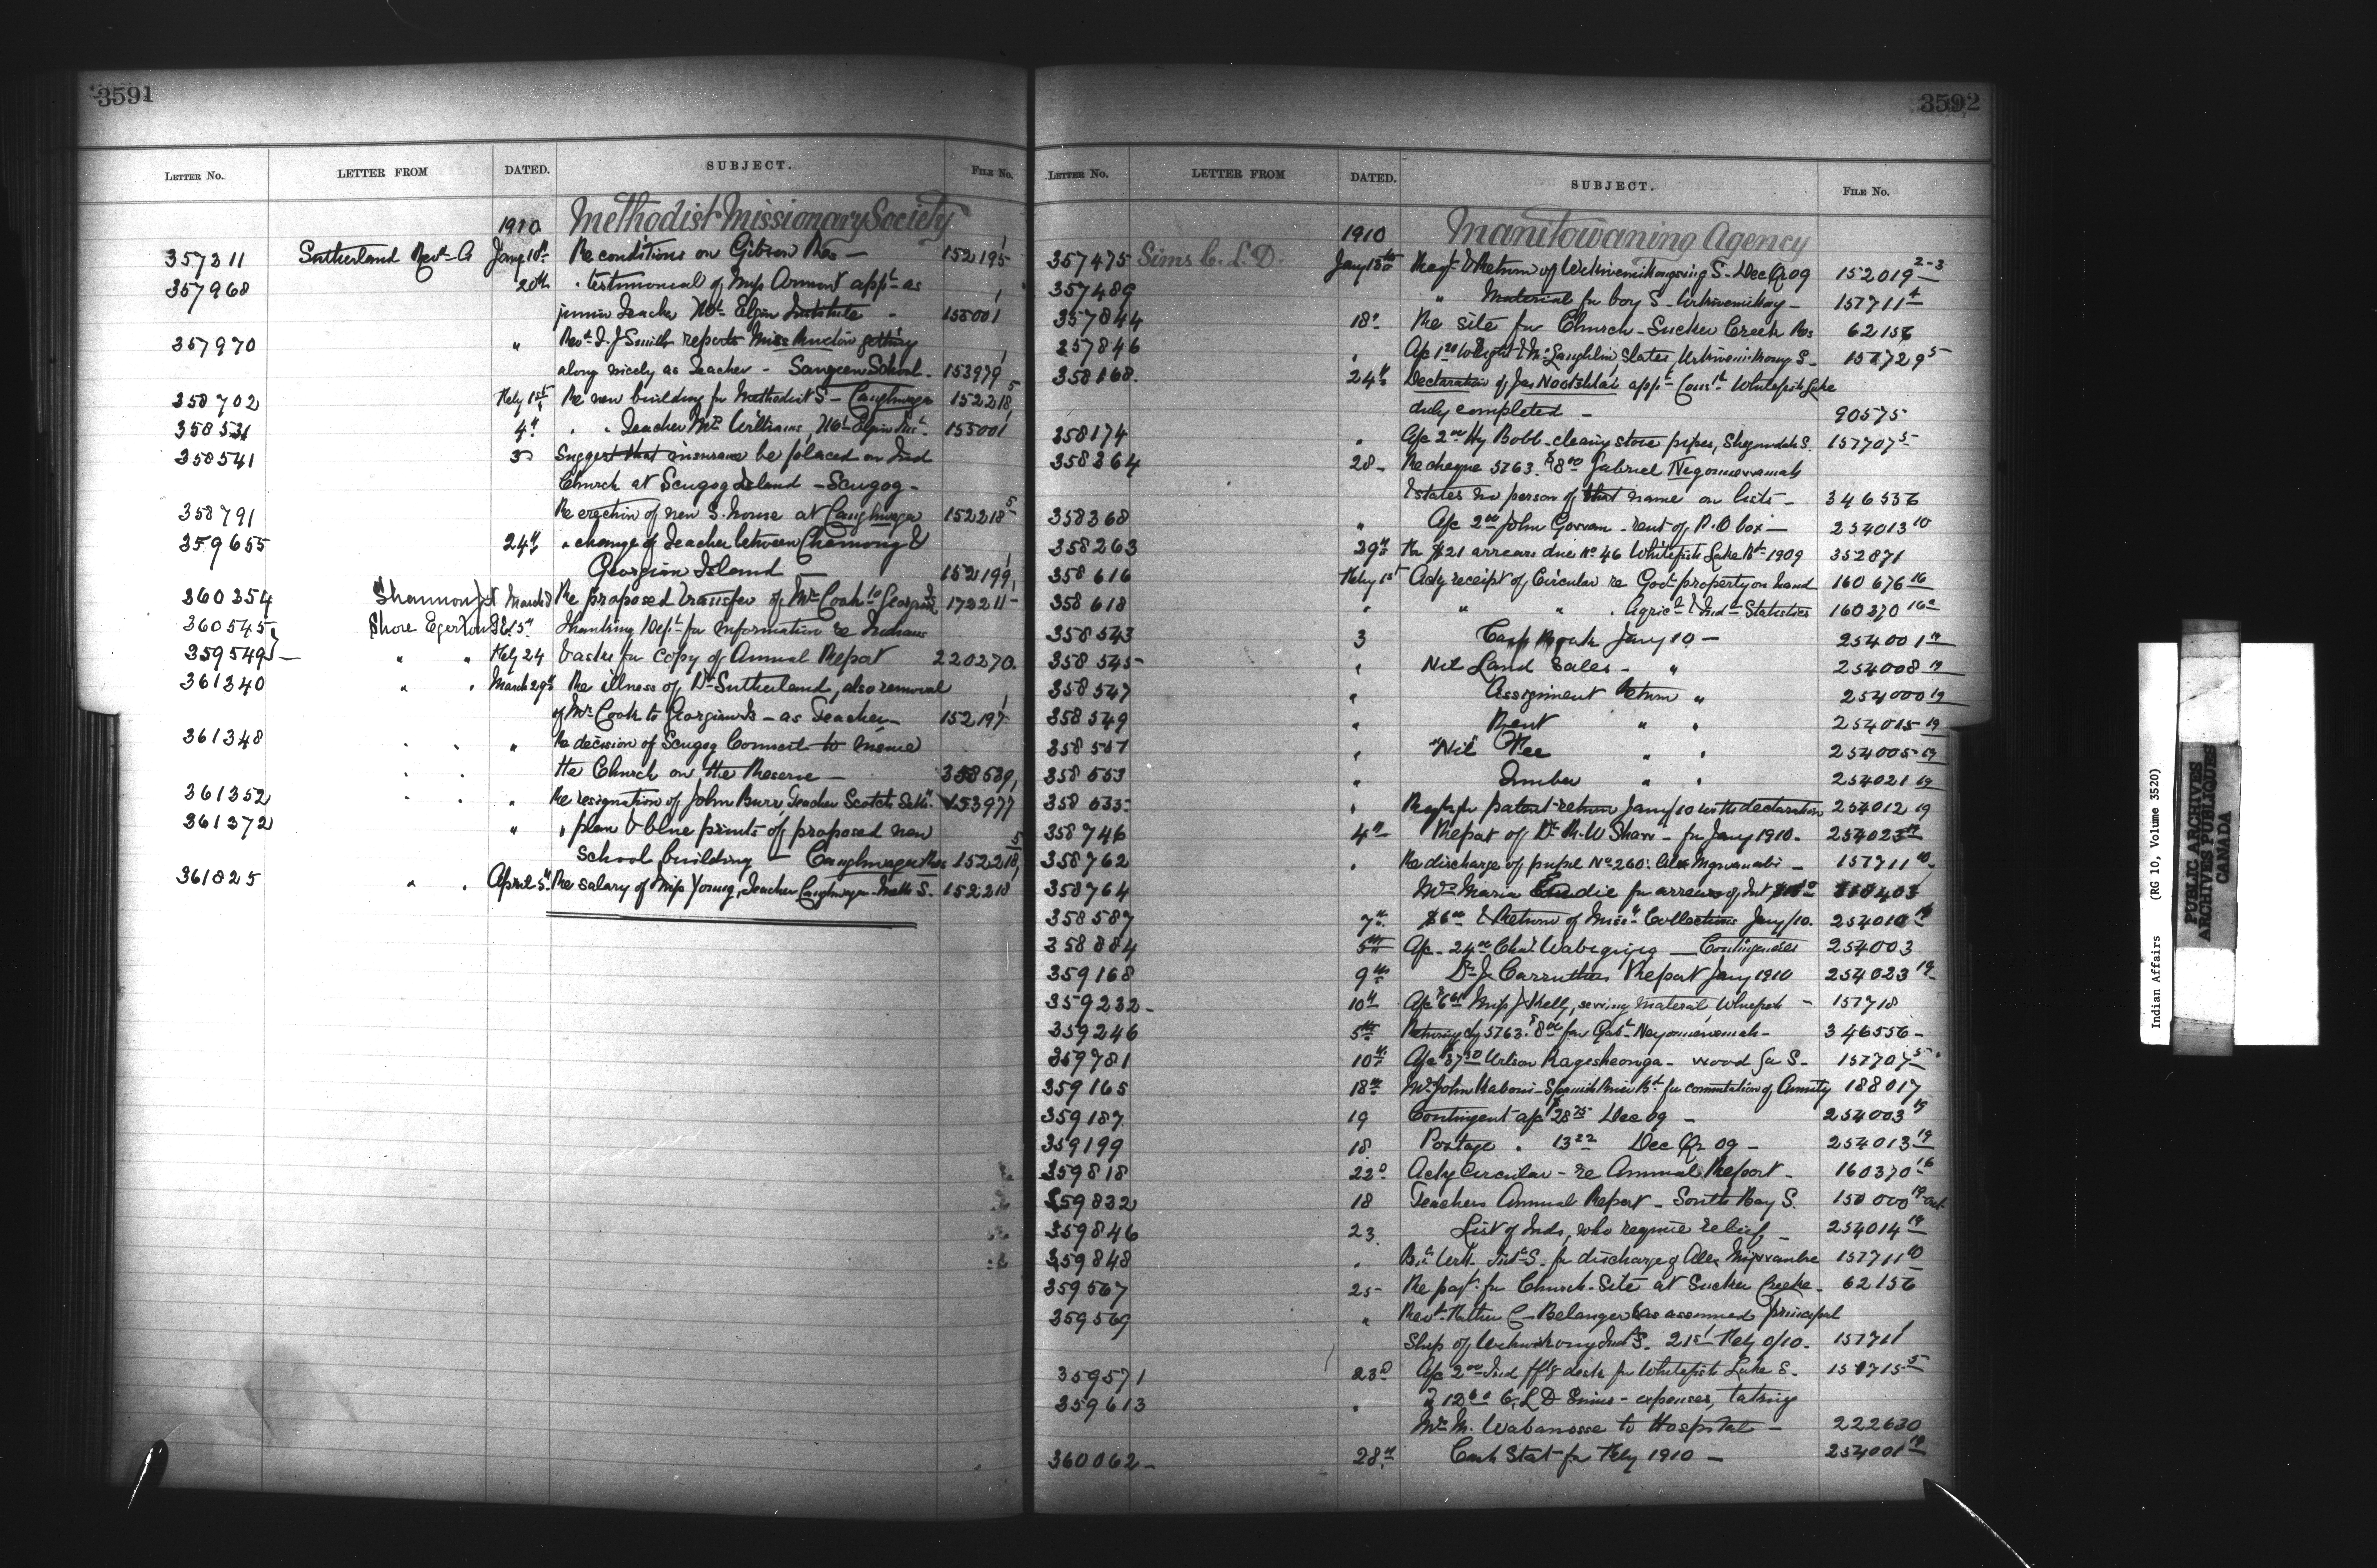 3591
LETTER No. LETTER FROM DATED. SUBJECT. FILE No.
1910 Methodist Missionary Society
357311 Sutherland Revd A Jany 10th Re conditions on Gibson Res — 152195
357968 20th " testimonial of Miss Armont appt as
junior Teacher Mt Elgin Institute 155001
357970 " Revd T. J Smith reports Miss getting
along nicely as Teacher - Saugeen School - 153979
358702 Feby 1st Re new building for Methodist S - Caughnwaga 152218 5
358531 4th " " Teacher Mr Williams, Mt Elgin Inst. 155001
358541 3 Suggest that insurance be placed on Ind
Church at Scugog Island - Scugog -
358791 Re erection of new S. house at Caughnwaga 152218 5
359655 24th " change of Teacher between Chemong &
Georgian Island 152199
360354 Shannon March Re proposed transfer of Mr Cook to Georgina Is 172211
360545 Shore Egerton 15th Thanking Dept for information re Indians
359549 " " Feby 24 & asks for copy of Annual Report 220270.
361340 " " March 29th Re illness of Dr Sutherland, also removal
of Mr Cook to Georgian Is - as Teacher - 152197
361348 " " " Re decision of Scugog Council to insure
the Church on the Reserve - 358539
361352 " " " Re resignation of John Burr, Teacher Scotch Settt. 153977
361372 " " plan & blue prints of proposed new
School building - Caughnwaga Res 152218 5
361825 " " April 5th Re salary of Miss Young, Teacher Caughnwaga Meth S. 152218
3592
LETTER No. LETTER FROM DATED. SUBJECT. FILE No.
1910 Manitowaning Agency
357475 Sims C. L. D. Jany 15th Reqt & Return of Wikwemikongsing S - Dec Qr 09 152019 2-3
357489 " Material for boy S - Wikwemikong - 157711 4
357844 18th Re site for Church - Sucker Creek Res 62156
357846 " A/c 1.20 Wright & McLaughlin, slates, Wikwemikong S - 157729 5
358168. 24th Declaration of Jas Nootchtai appt Const Whitefish Lake
duly completed - 90575
358174 " A/c 2.00 Hy Bobb - cleaning stove pipes, Shegundah S. 157707 5
358264 28 - Re cheque 5763. $8.00 Gabriel
& states no person of that name on lists - 346536
358368 " A/c 2.00 John Gorvan - rent of P.O box - 254013 10
358263 29th Re $21 arrears due No 46 Whitefish Lake Bd 1909 352871
358616 Feby 1st Ackg receipt of Circular re Govt property on hand 160676 16
358618 " " " " Agricl & Indl Statistics 160370 16
358543 3 Cash Book Jany 10 - 254001 19
358545 " Nil Land Sales - " 254008 19
358547 " Assignment Return " 254000 19
358549 " Rent " " 254015 19
358551 " "Nil" Fee " " 254005 19
358553 " Timber " " 254021 19
358 535 " Reqt for patent return Jany/10 with declaration 254012 19
358746 4th Report of Dr R. W Shaw - for Jany 1910 - 254023 19
358762 " Re discharge of pupil No 260: Alex - 157711 10
358764 Mrs Maria for arrears of Int
358587 7th $6.00 & Return of Collections Jany/10. 254010 19
358884 5th A/c - 24.00 Chas Wabegijig - Contingencies 254003
359168 9th Dr J. Carruthers Report Jany 1910 254023 19
359232 - 10th A/c Miss J Kelly, sewing material - 157718
359246 5th Returning chq 5763. $8.00 for Gabl - 346556 -
359781 10th A/c $37.50 Wilson Kagesheonga - wood for S - 157707 5
359165 18th Mr John - Spanish River Bd for commutation of Annuity 188017
359187 19 Contingent a/c $28.75 Dec 09 - 254003 19
359199 18 Postage " 13.22 Dec Qr 09 - 254013 19
359818 22d Ackg Circular - re Annual Report - 160370 16
359832 18 Teachers Annual Report - South Bay S. 150000 19
359846 23 List of Inds, who require relief - 254014 19
359848 " Indl S. for discharge of Alex 157711 10
359567 25 - Re payt for Church-Site at Sucker Creek - 62156
359569 " Revd Father C - Belanger has assumed principal
Ship of Wikwikong Indl S. 21st Feby 9/10 - 157711
359571 23d A/c 2.00 Ind desk for Whitefish Lake S. 150715 5
359613 " " 12.60 C. L D Sims - expenses, taking
Mrs M. Wabanosse to Hospital - 222630
360062 - 28th Cash Stat for Feby 1910 - 254001 19
Indian Affairs (RG 10, Volume 3520)
PUBLIC ARCHIVES
ARCHIVES PUBLIQUES
CANADA